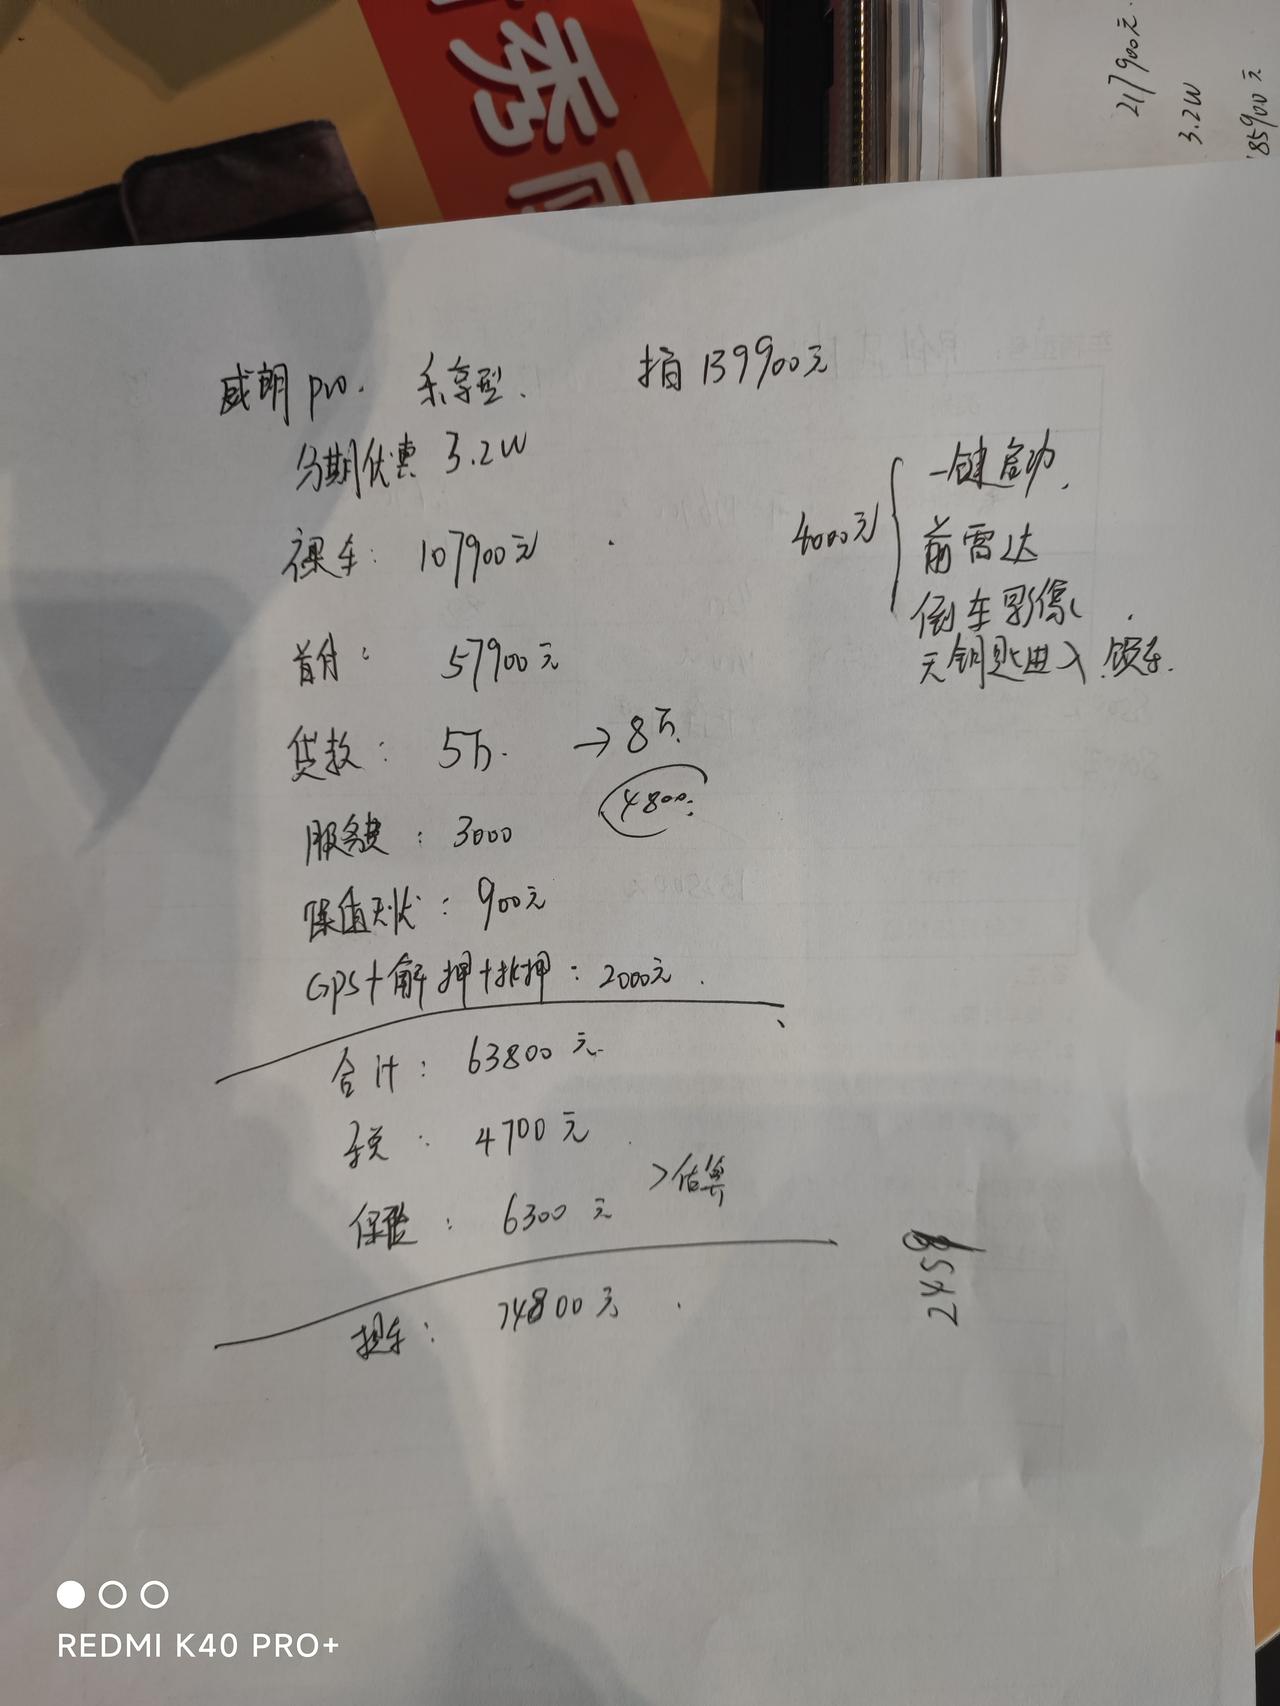 秀
217900元
3.2W
85900元
威朗pro. 乐享型. 指139900元
分期优惠 3.2W
裸车: 107900元
首付: 57900元
贷款: 5万. →8万.
4800.
服务费: 3000
保值无忧: 900元
GPS+解押+抵押: 2000元.
合计: 63800元.
税: 4700元
>估算
保险: 6300元
提车: 74800元.
4000元
一键启动.
前雷达
倒车影像
无钥匙进入.锁车.
2459
REDMI K40 PRO+